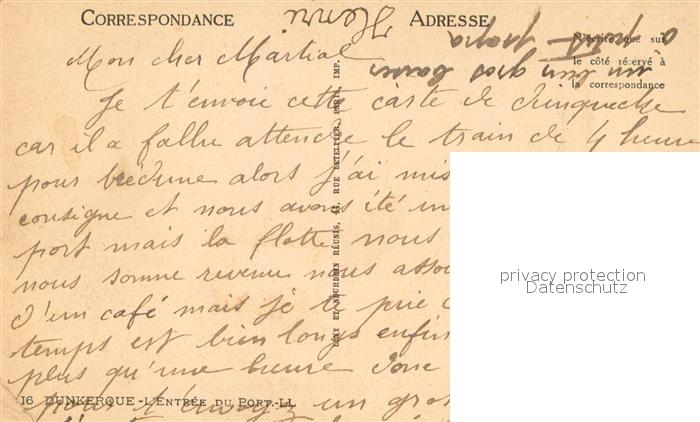 CORRESPONDANCE
ADRESSE
N'écrire que sur
le côté réservé à
la correspondance
Henri
un bien gros baiser
a petit papa
Mon cher Martial
Je t'envoie cette carte de
car il a fallu attendre le train de 4 heure
pour alors j'ai mis
consigne et nous avons été
port mais la flotte nous
nous somme revenu nous
d'un café mais je te prie
temps est bien longs enfin
plus qu'une heure donc
pour t'envoyer un gros
LÉVY ET NEURDEIN RÉUNIS, 44, RUE LETELLIER, PARIS, IMP.
16 DUNKERQUE - L'ENTRÉE DU PORT.-LL
privacy protection
Datenschutz